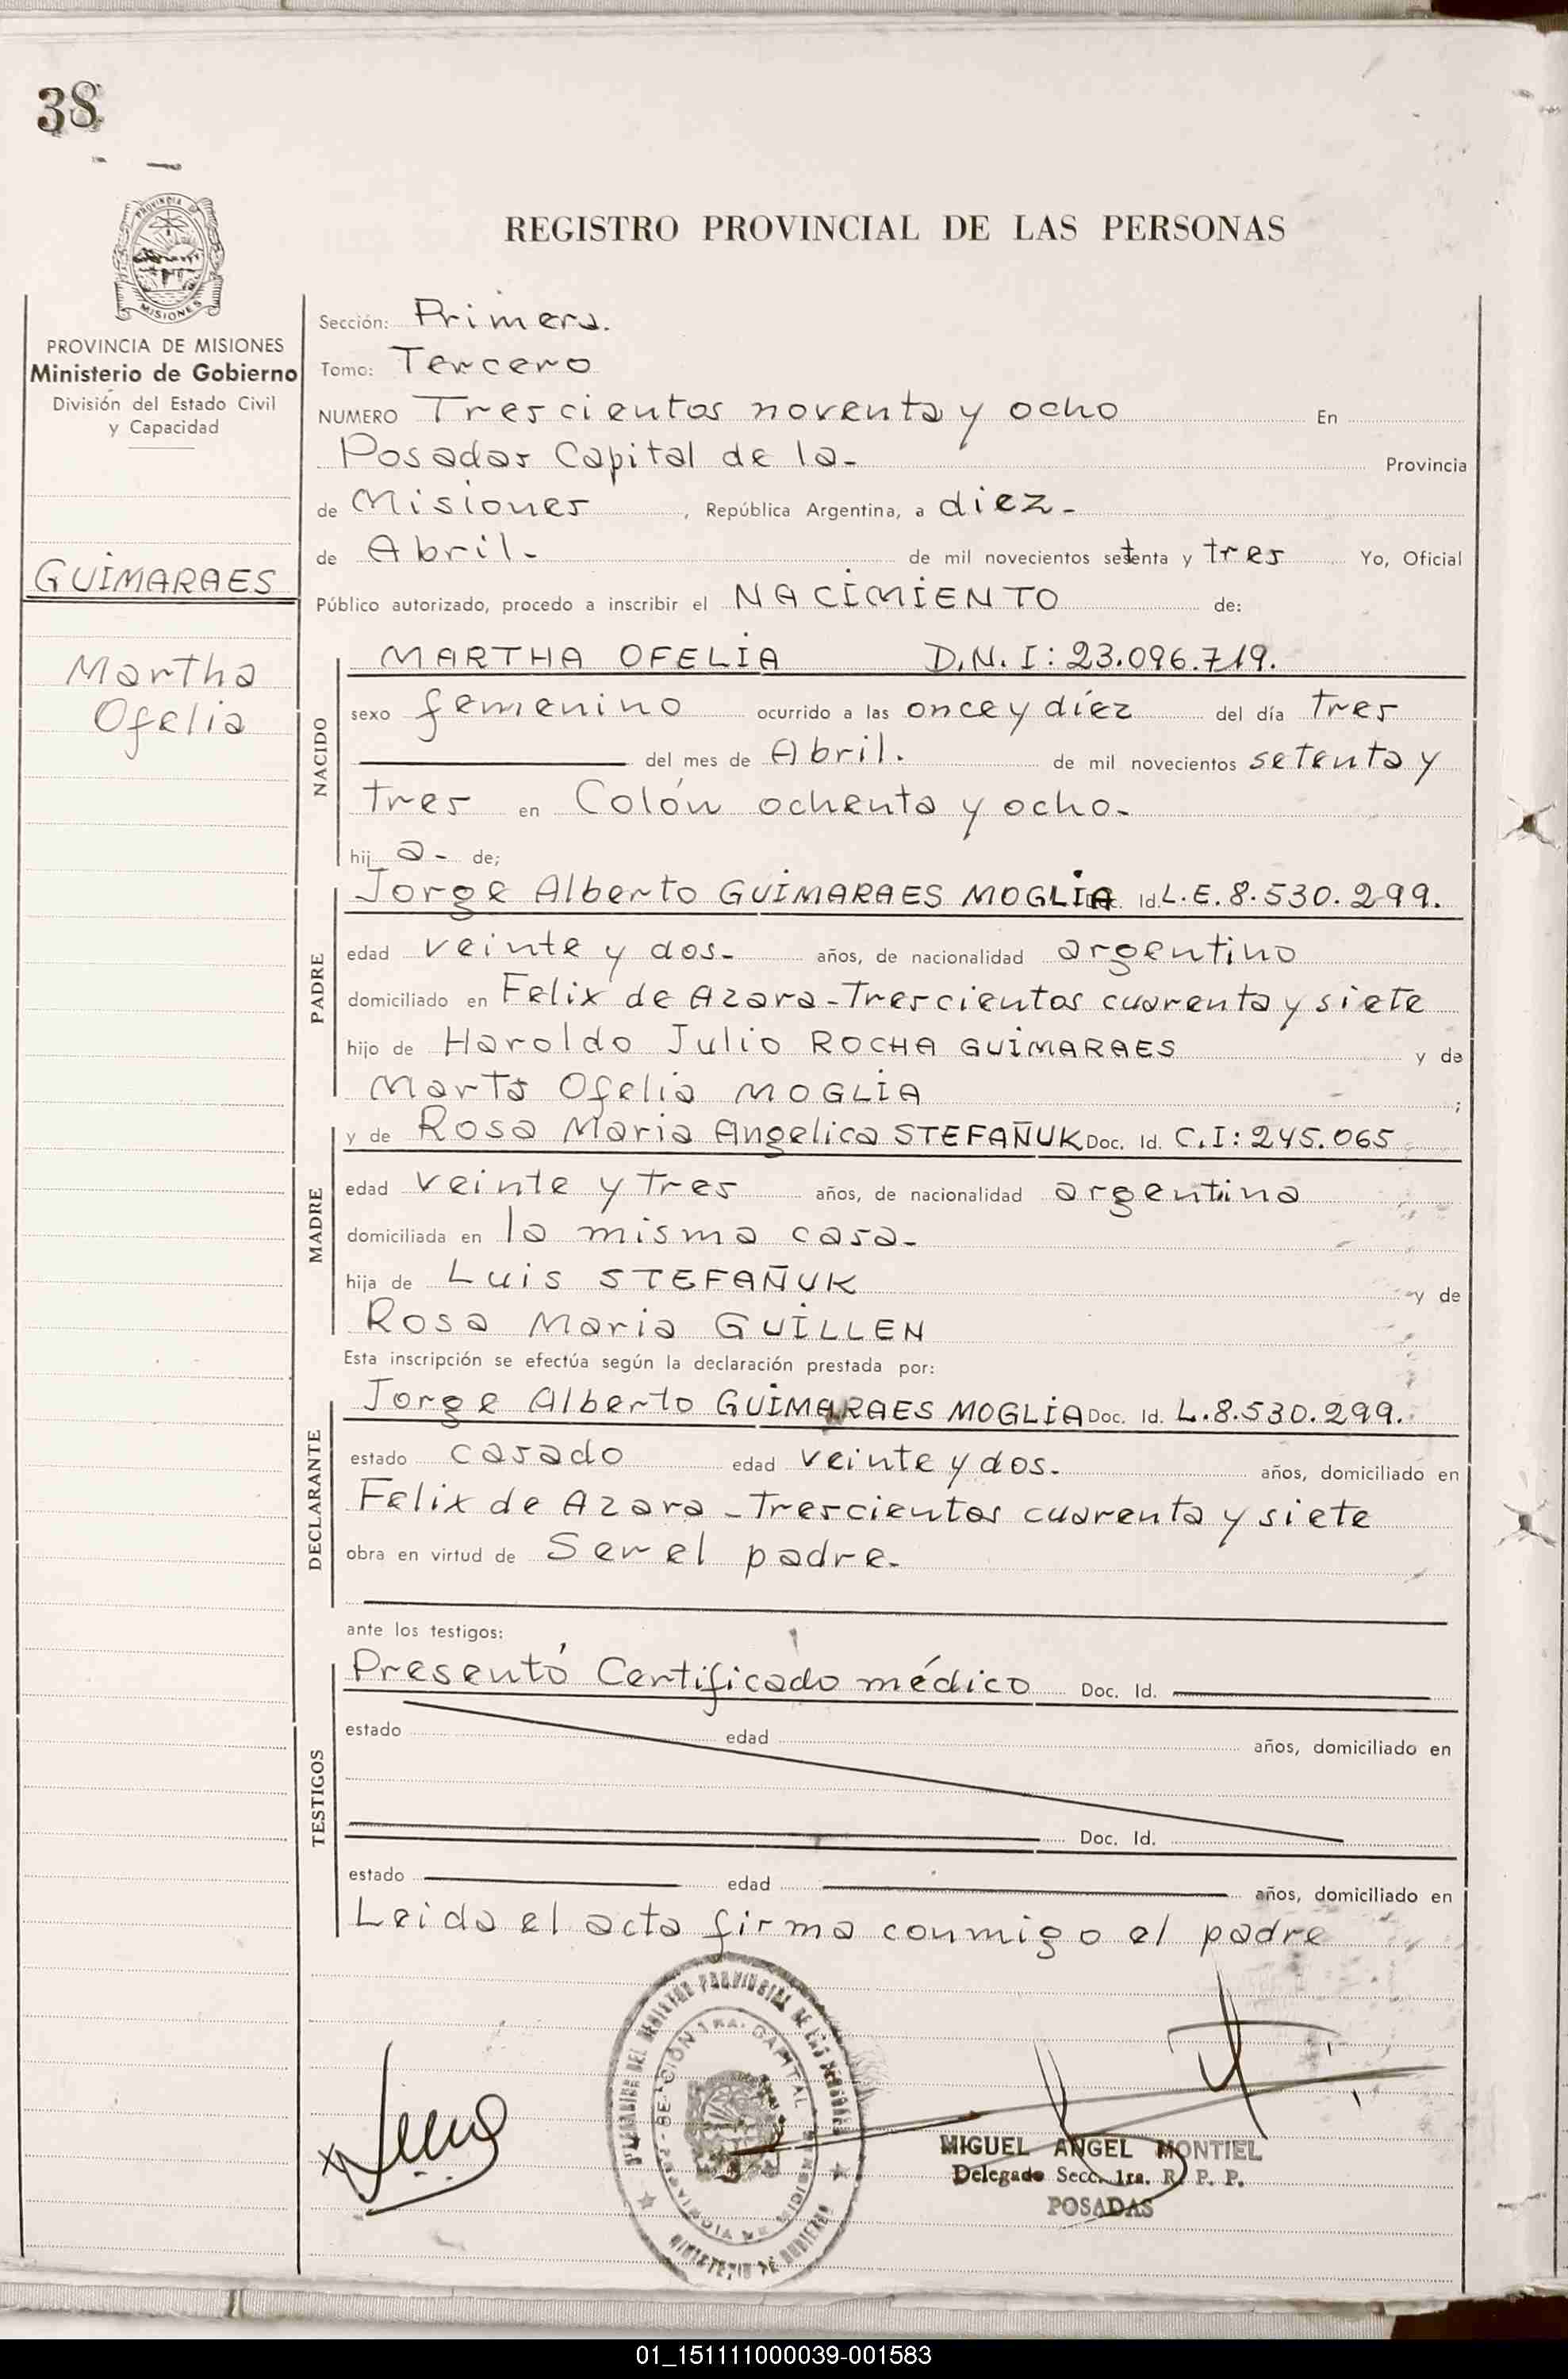 38
PROVINCIA
MISIONES
PROVINCIA DE MISIONES
Ministerio de Gobierno
División del Estado Civil
y Capacidad
GUIMARAES
Martha
Ofelia
REGISTRO PROVINCIAL DE LAS PERSONAS
Sección: Primera.
Tomo: Tercero
NUMERO Trescientos noventa y ocho En
Posadas Capital de la- Provincia
de Misiones, República Argentina, a diez-
de Abril- de mil novecientos setenta y tres Yo, Oficial
Público autorizado, procedo a inscribir el NACIMIENTO de:
NACIDO
MARTHA OFELIA D.N.I: 23.096.719.
sexo femenino ocurrido a las once y diéz del día tres
del mes de Abril. de mil novecientos setenta y
tres en Colón ochenta y ocho-
hij a- de;
PADRE
Jorge Alberto GUIMARAES MOGLIA Id. L.E. 8.530.299.
edad veinte y dos- años, de nacionalidad argentino
domiciliado en Felix de Azara-Trescientos cuarenta y siete
hijo de Haroldo Julio ROCHA GUIMARAES y de
Marta Ofelia MOGLIA ;
MADRE
y de Rosa Maria Angelica STEFAÑUK Doc. Id. C.I: 245.065
edad veinte y tres años, de nacionalidad argentina
domiciliada en la misma casa-
hija de Luis STEFAÑUK y de
Rosa Maria GUILLEN
Esta inscripción se efectúa según la declaración prestada por:
DECLARANTE
Jorge Alberto GUIMARAES MOGLIA Doc. Id. L.8.530.299.
estado casado edad veinte y dos- años, domiciliado en
Felix de Azara-Trescientos cuarenta y siete
obra en virtud de Ser el padre-
ante los testigos:
TESTIGOS
Presentó Certificado médico Doc. Id.
estado edad años, domiciliado en
Doc. Id.
estado edad años, domiciliado en
Leida el acta firma conmigo el padre
PROVINCIAL DE LAS
CAPITAL
MIGUEL ANGEL MONTIEL
Delegado Secc. 1ra. R. P. P.
POSADAS
01_151111000039-001583